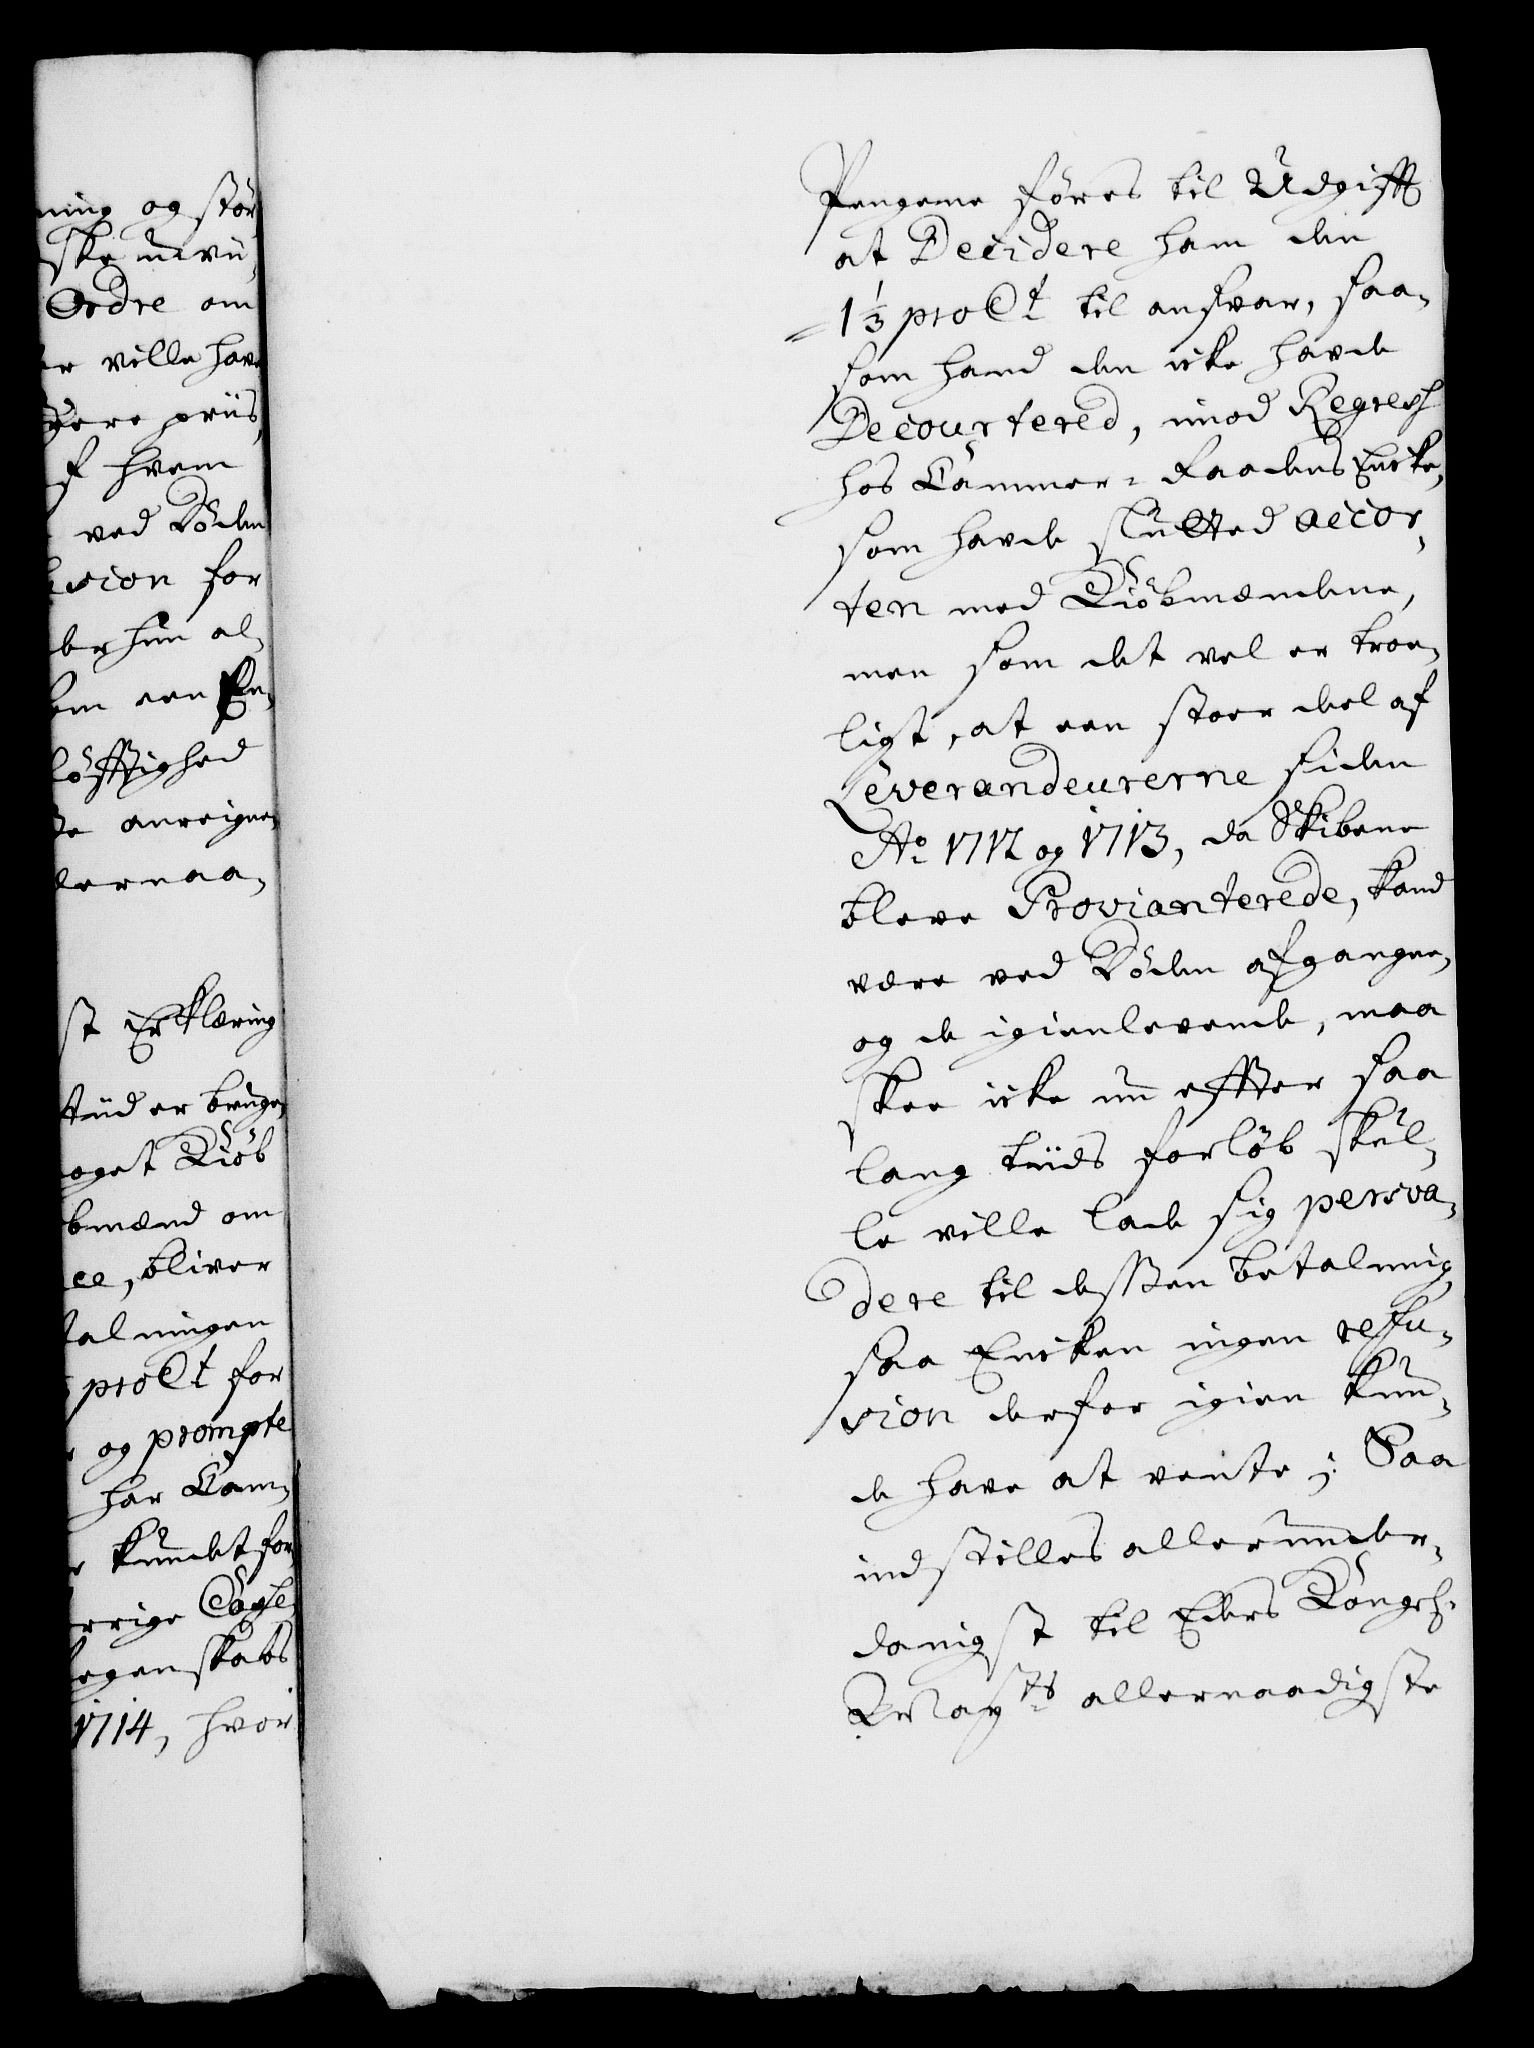 ning og stör
ske u-vii-
Ordre om
er ville have
dere priis,
af hvem
ved Döden
sion for
der hun al-
som een En-
löfftighed
te anreigne,
lernaa-
st Erklæring
tiid er bruge-
oget Kiöb
bmænd om
ce, bliver
talningen
proCt for
og prompte
har Cam-
kundet for
rrige
egenskabs
1714, hvor
Pengene föres til Udgifft
at Decidere ham den
1 1/3 proCt til ansvar, saa-
som hand den icke havde
Decourtered, imod Regress
hos Cammer-Raadens Encke,
som havde slutted accor-
ten med Kiöbmændene,
men som det vel er troe-
ligt, at een stoer deel af
Leverandeurerne siden
Ao 1712 og 1713, da Skibene
bleve Provianterede, kand
være ved Döden afgangne,
og de igienlevende, maa
skee icke nu effter saa
lang tiids forlöb skul-
le ville lade sig persva-
dere til dessen betalning,
saa Encken ingen refu-
sion derfor igien kun-
de have at vente; Saa
indstilles allerunder-
danigst til Eders Kongel:
Mayts allernaadigste